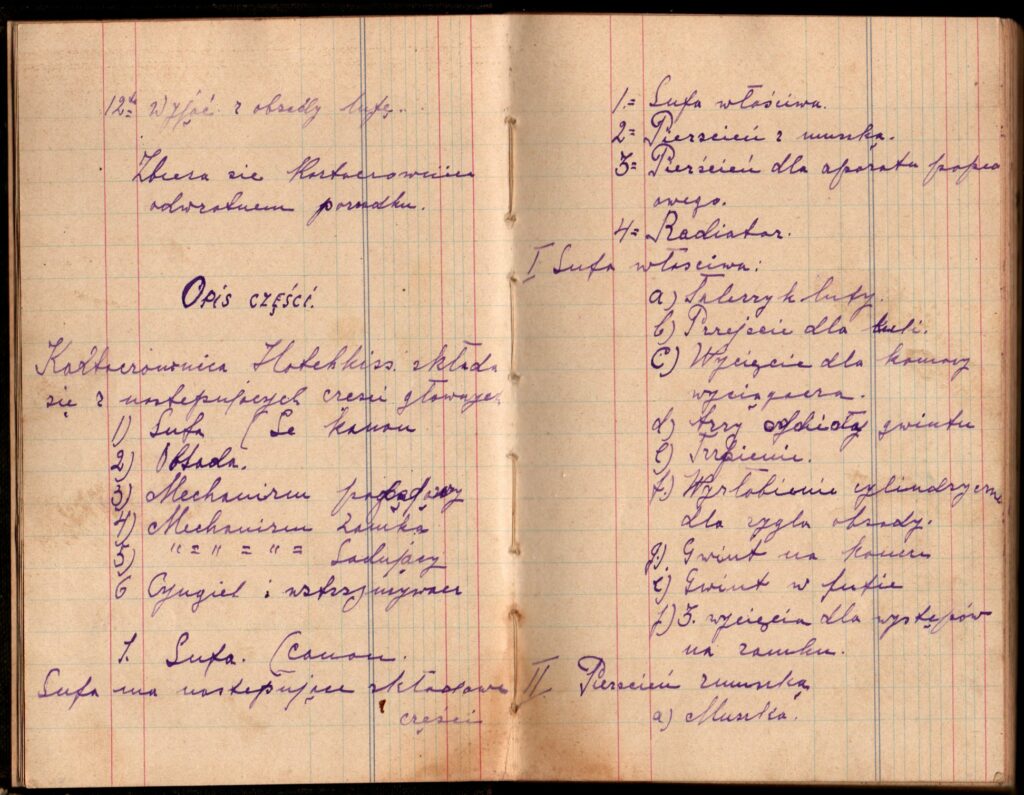 12te Wyjąć z obsady lufę.
Zbiera się Kartaczownice
odwrotnem porządku.
Opis części.
Kartaczownica Hotchkiss składa
się z następujących cześci głównych
1) Lufa (Le kanon
2) Obsada.
3) Mechanizm popędowy
4) Mechanizm Zamka
5) " = " = " = Ładujący
6 Cyngiel i wstrzymywacz
1. Lufa. (canon.
Lufa ma następujące składowe
części
1= Lufa właściwa.
2= Pierscień z muszką.
3= Pierścień dla aparatu popęd
owego.
4= Radiator.
I Lufa właściwa:
a) Talerzyk lufy.
b) Przejście dla kuli.
C) Wycięcie dla komory
wyciągacza.
d) trzy gwintu
e)
f.) Wyżłobienie cylindryczne
dla rygla obsady.
g.) Gwint na koncu
i) Gwint w lufie
j) 3. wycięcia dla występów
na zamku.
II. Pierscień zmuszką
a) Muszka.